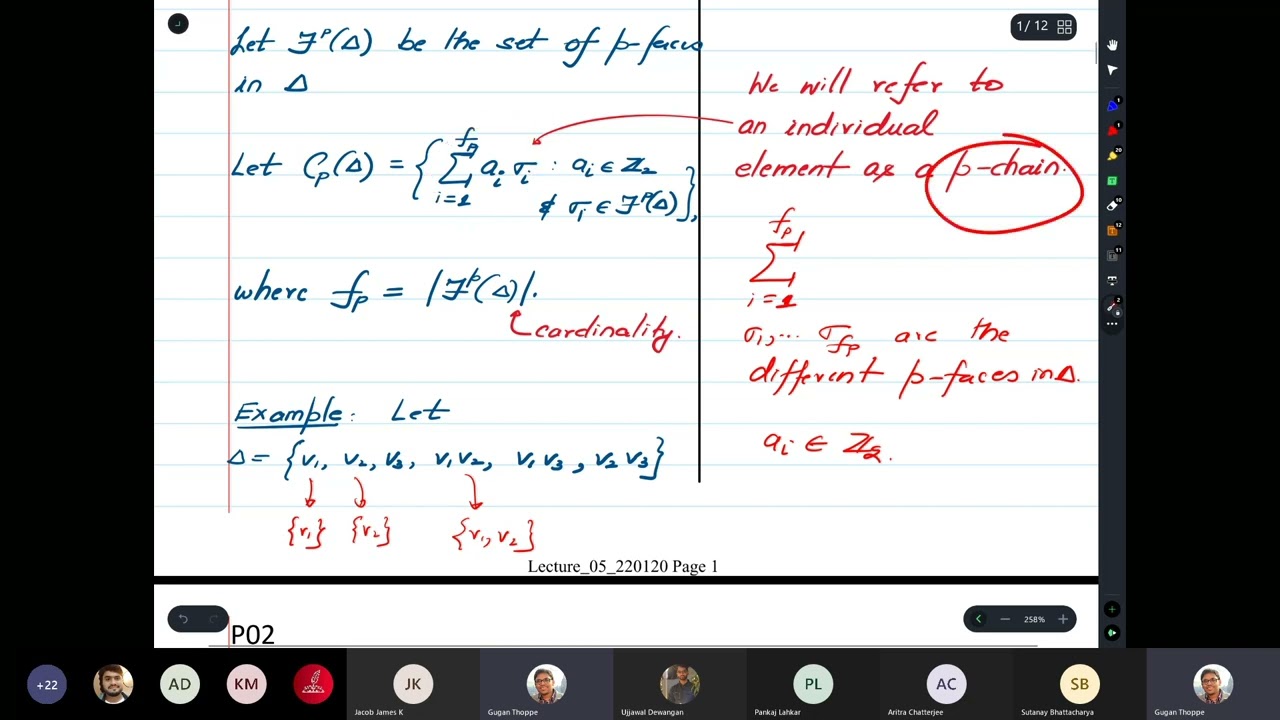 1 / 12
Let F^p(Δ) be the set of p-faces
in Δ
Let C_p(Δ) = { ∑_{i=1}^{f_p} a_i σ_i : a_i ∈ ℤ_2
& σ_i ∈ F^p(Δ) },
where f_p = |F^p(Δ)|.
cardinality.
Example: Let
Δ = {v_1, v_2, v_3, v_1 v_2, v_1 v_3, v_2 v_3}
{v_1} {v_2} {v_1, v_2}
We will refer to
an individual
element as a p-chain.
∑_{i=1}^{f_p}
σ_1, ... σ_{f_p} are the
different p-faces in Δ.
a_i ∈ ℤ_2.
Lecture_05_220120 Page 1
258%
P02
+22
AD
KM
JK
PL
AC
SB
Jacob James K
Gugan Thoppe
Ujjawal Dewangan
Pankaj Lahkar
Aritra Chatterjee
Sutanay Bhattacharya
Gugan Thoppe